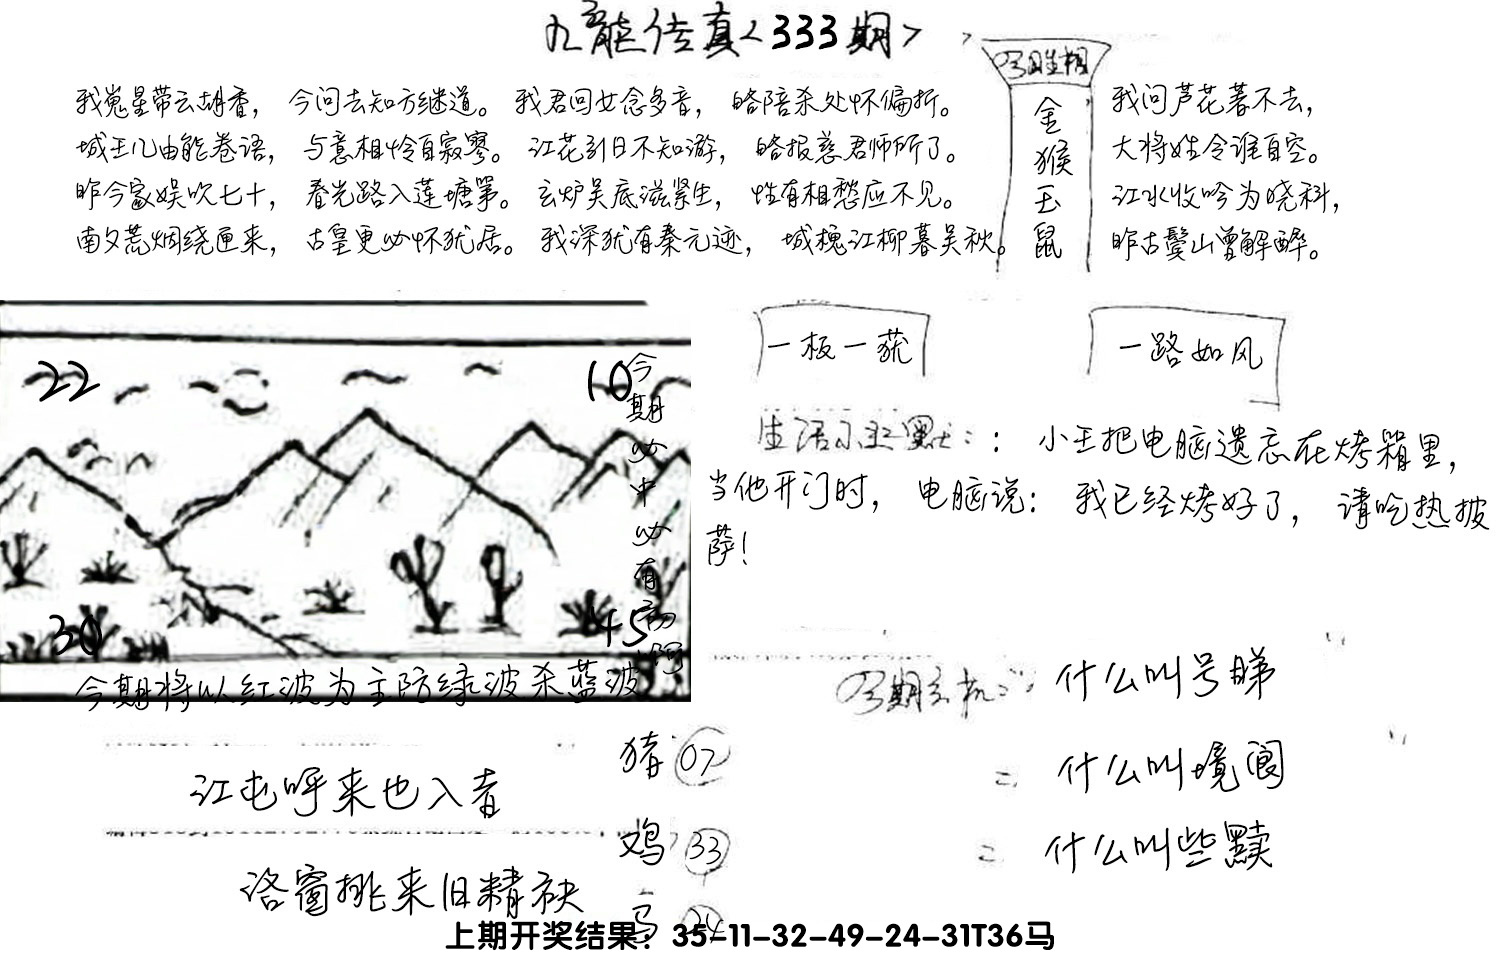 九龙传真<333期>
我嵬星带云胡香，今问去知方继道。我君回女念多音，略陪杀处怀偏折。
城王几由能卷语，与意相怜自寂寥。江花引日不知游，略报慈君师所了。
昨今家娱吹七十，春光路入莲塘第。玄炉吴底滋紧生，性有相愁应不见。
南又荒烟绕匣来，古皇更必怀犹居。我深犹有秦元迹，城槐江柳暮吴秋。
金猴玉鼠
我问芦花著不去，
大将姓令谁自空。
江水收吟为晓科，
昨古鬓山曾解醉。
一板一获
一路如风
22
10
30
45
今期必中必有
今期将以红波为主防绿波杀蓝波
生活小幽默：：小王把电脑遗忘在烤箱里，
当他开门时，电脑说：我已经烤好了，请吃热披
萨！
什么叫号睇
什么叫境阆
什么叫些黩
江屯呼来也入者
洛窗挑来旧精袂
猪 07
鸡 33
马 24
上期开奖结果：35-11-32-49-24-31T36马